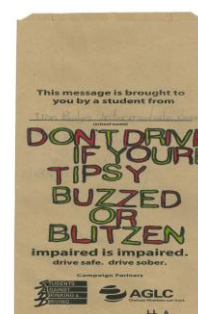 This message is brought to
you by a student from
(school name)
DONT DRIVE
IF YOUR
TIPSY
BUZZED
OR
BLITZEN
impaired is impaired.
drive safe. drive sober.
Campaign Partners
STUDENTS
AGAINST
DRINKING &
DRIVING
AGLC